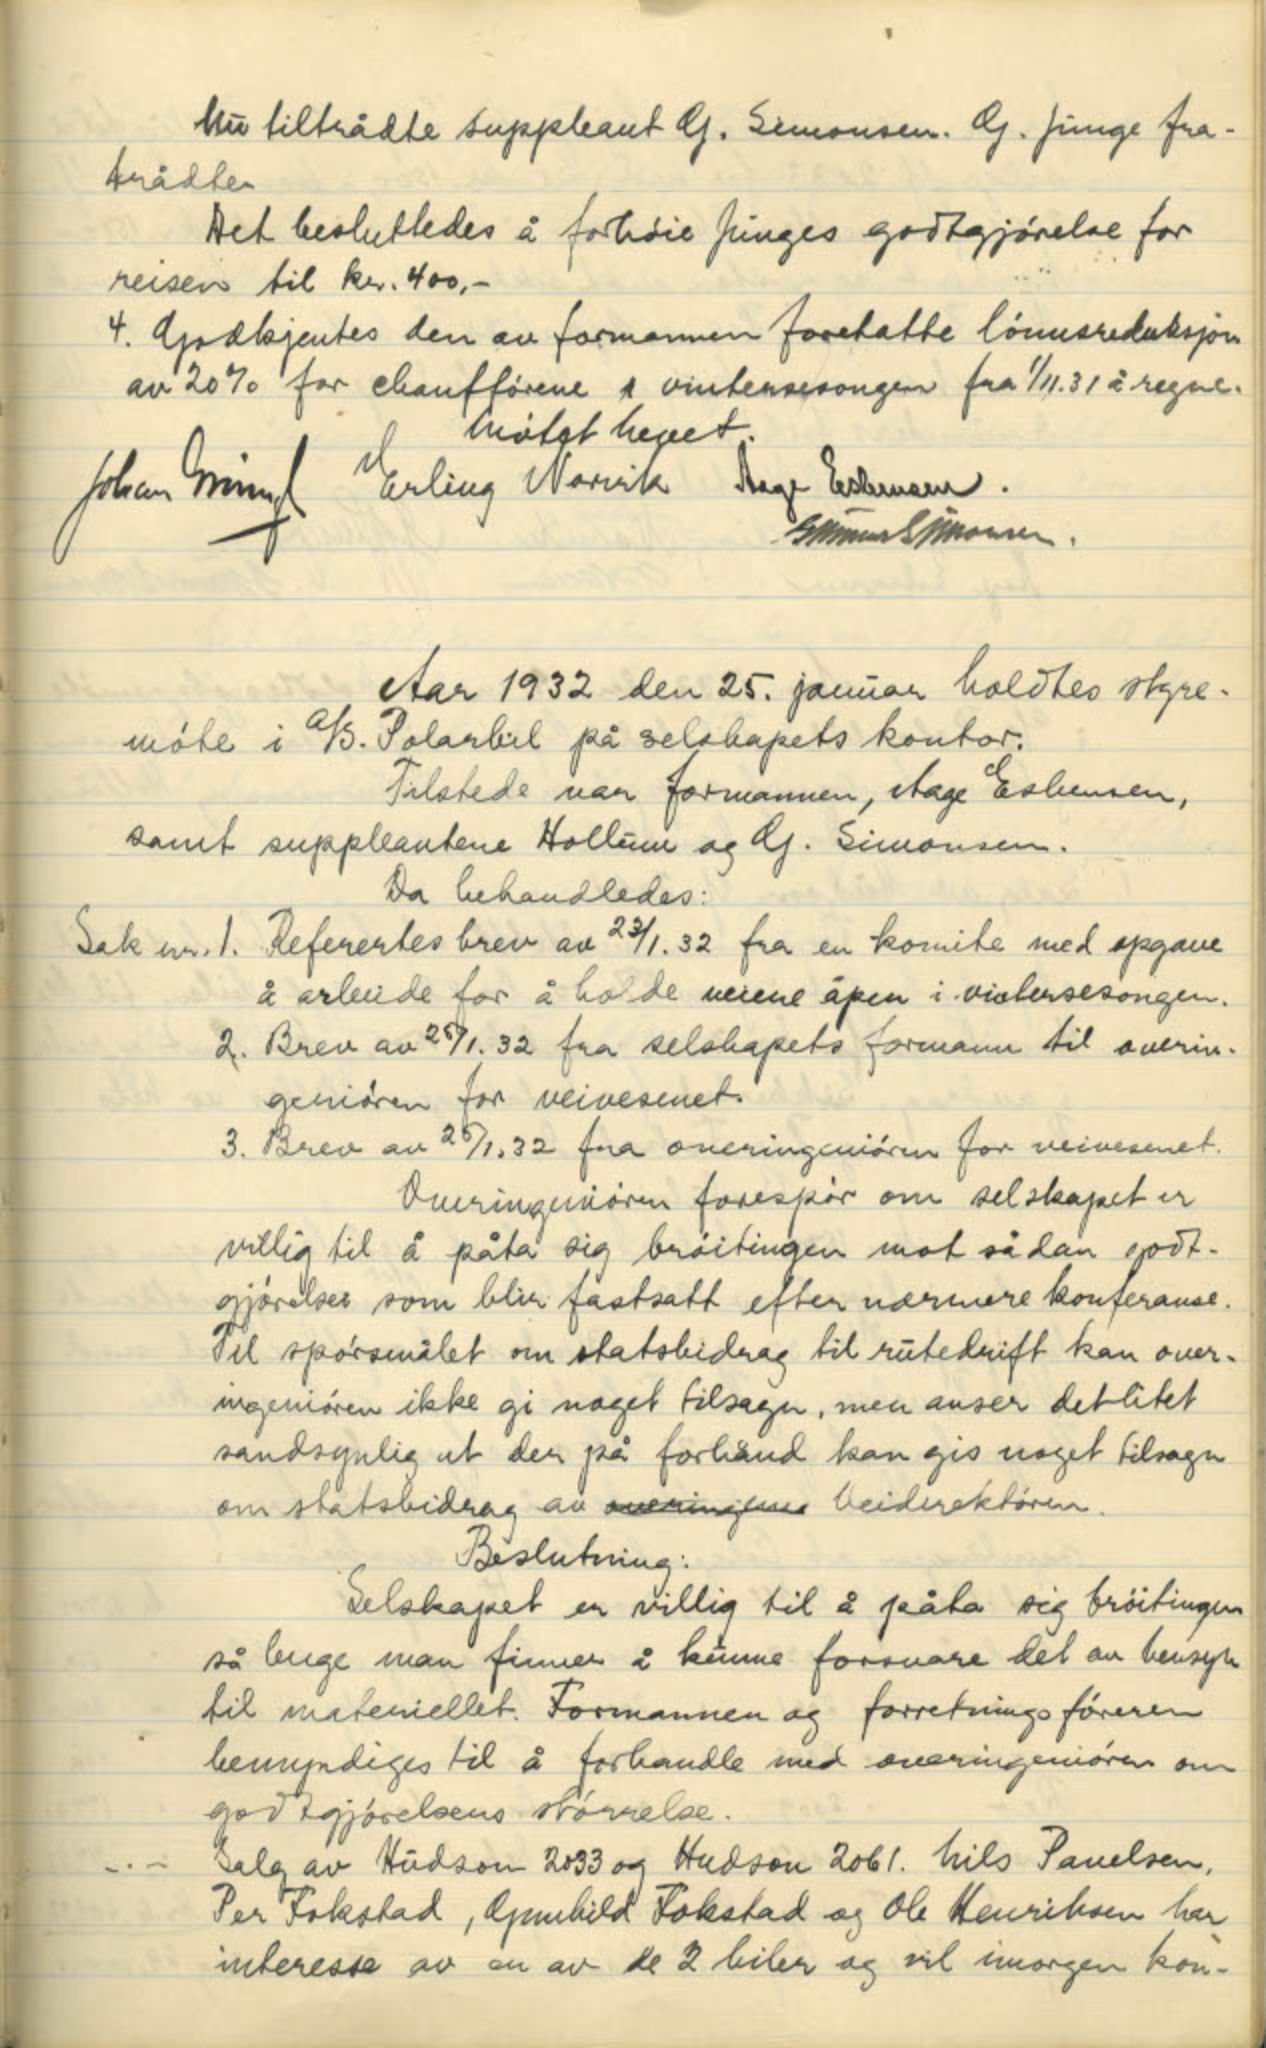 Nu tiltrådte suppleant G. Simonsen. G. Junge fra-
trådte.
Det besluttedes å forhöie Junges godtgjörelse for
reisen til kr. 400,-
4. Godkjentes den av formannen foretatte lönnsreduksjon
av 20% for chaufförene i vintersesongen fra 1/11.31 å regne.
Mötet hevet.
Johan Erling Norvik Aage Esbensen.
Gunnar Simonsen.
Aar 1932 den 25. januar holdtes styre-
möte i A/S. Polarbil på selskapets kontor.
Tilstede var formannen, Aage Esbensen,
samt suppleantene Hollum og G. Simonsen.
Da behandledes:
Sak nr. 1. Referertes brev av 23/1.32 fra en komite med opgave
å arbeide for å holde veiene åpen i vintersesongen.
2. Brev av 25/1.32 fra selskapets formann til overin-
geniören for veivesenet.
3. Brev av 25/1.32 fra overingeniören for veivesenet.
Overingeniören forespör om selskapet er
villig til å påta sig bröitingen mot sådan godt-
gjörelse som blir fastsatt efter nærmere konferanse.
Til spörsmålet om statsbidrag til rutedrift kan over-
ingeniören ikke gi noget tilsagn, men anser det litet
sandsynlig at der på forhånd kan gis noget tilsagn
om statsbidrag av overingeniö Veidirektören.
Beslutning:
Selskapet er villig til å påta sig bröitingen
så lenge man finner å kunne forsvare det av hensyn
til materiellet. Formannen og forretningsföreren
bemyndiges til å forhandle med overingeniören om
godtgjörelsens störrelse.
-.- Salg av Hudson 2033 og Hudson 2061. Nils Pauelsen,
Per Fokstad, Gunhild Fokstad og Ole Henriksen har
interesse av en av de 2 biler og vil imorgen kon-